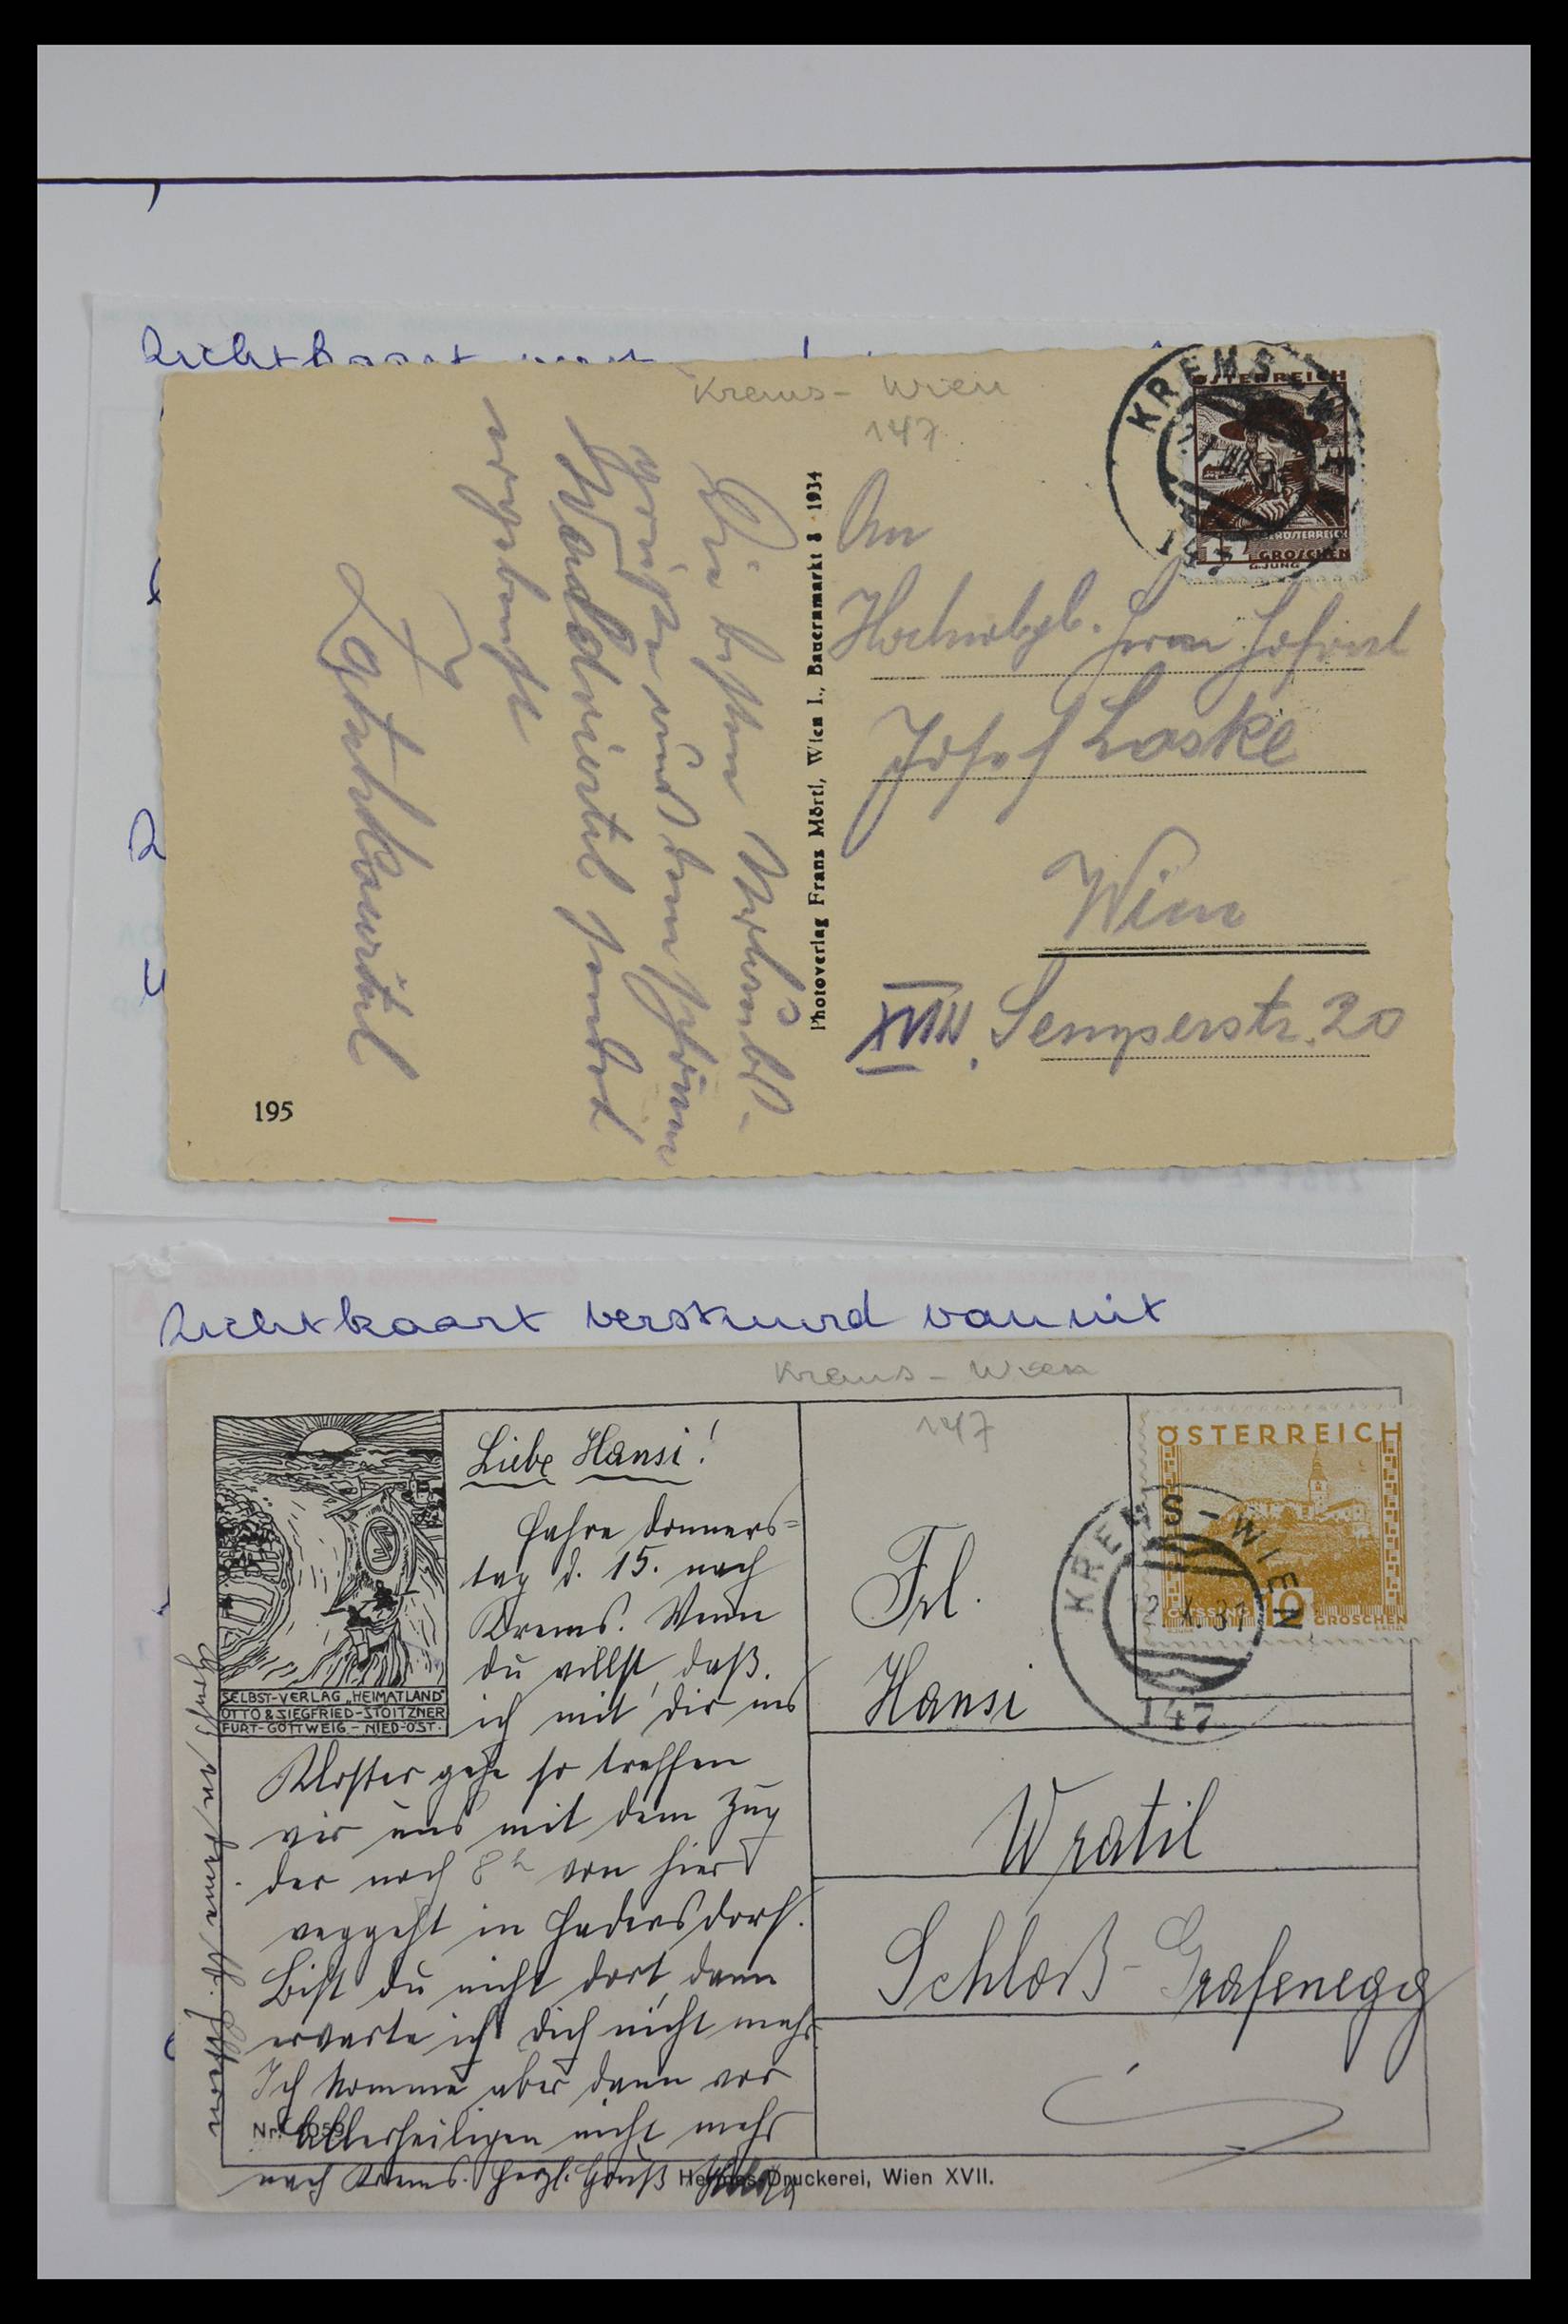 Krems - Wien
147
KREMS-W
147
ÖSTERREICH
OBERÖSTERREICH
12 GROSCHEN
G. JUNG
An
Hochwolgb. Herrn Hofrat
Josef Loske
Wien
XVIII. Semperstr. 20
Photoverlag Franz Mörtl, Wien I., Bauernmarkt 8 · 1934
Die besten
Grüße aus dem schönen
Waldviertel sendet
ergebenst
195
Zichtkaart verstuurd vanuit
Krems - Wien
147
ÖSTERREICH
GÜSSING 10 GROSCHEN
KREMS-WIEN
12.X.31
147
SELBST-VERLAG „HEIMATLAND"
OTTO & SIEGFRIED-STOITZNER
FURT-GÖTTWEIG - NIED-ÖST.
Liebe Hansi!
Fahre Donners=
tag d. 15. nach
Krems. Wenn
du willst, daß
ich mit dir ins
Kloster gehe so treffen
wir uns mit dem Zug
der nach 8h von hier
weggeht in Hadersdorf.
Bist du nicht dort, dann
erwarte ich dich nicht mehr.
Ich komme aber dann vor
Allerheiligen nicht mehr
nach Krems. Herzl. Gruß
Frl.
Hansi
Wratil
Schloß-Grafenegg
Nr.
Hermes-Druckerei, Wien XVII.